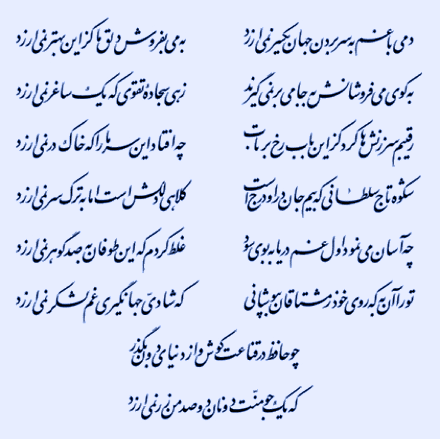 دمی با غم به سر بردن جهان یکسر نمی‌ارزد به می بفروش دلق ما کزین بهتر نمی‌ارزد
به کوی می فروشانش به جامی بر نمی‌گیرند زهی سجادهٔ تقوی که یک ساغر نمی‌ارزد
رقیبم سرزنش‌ها کرد کز این باب رخ برتاب چه افتاد این سر ما را که خاک در نمی‌ارزد
شکوه تاج سلطانی که بیم جان در او درج است کلاهی دلکش است اما به ترک سر نمی‌ارزد
چه آسان می‌نمود اول غم دریا به بوی سود غلط کردم که این طوفان به صد گوهر نمی‌ارزد
تو را آن به که روی خود ز مشتاقان بپوشانی که شادی جهانگیری غم لشکر نمی‌ارزد
چو حافظ در قناعت کوش و از دنیای دون بگذر
که یک جو منت دونان دو صد من زر نمی‌ارزد